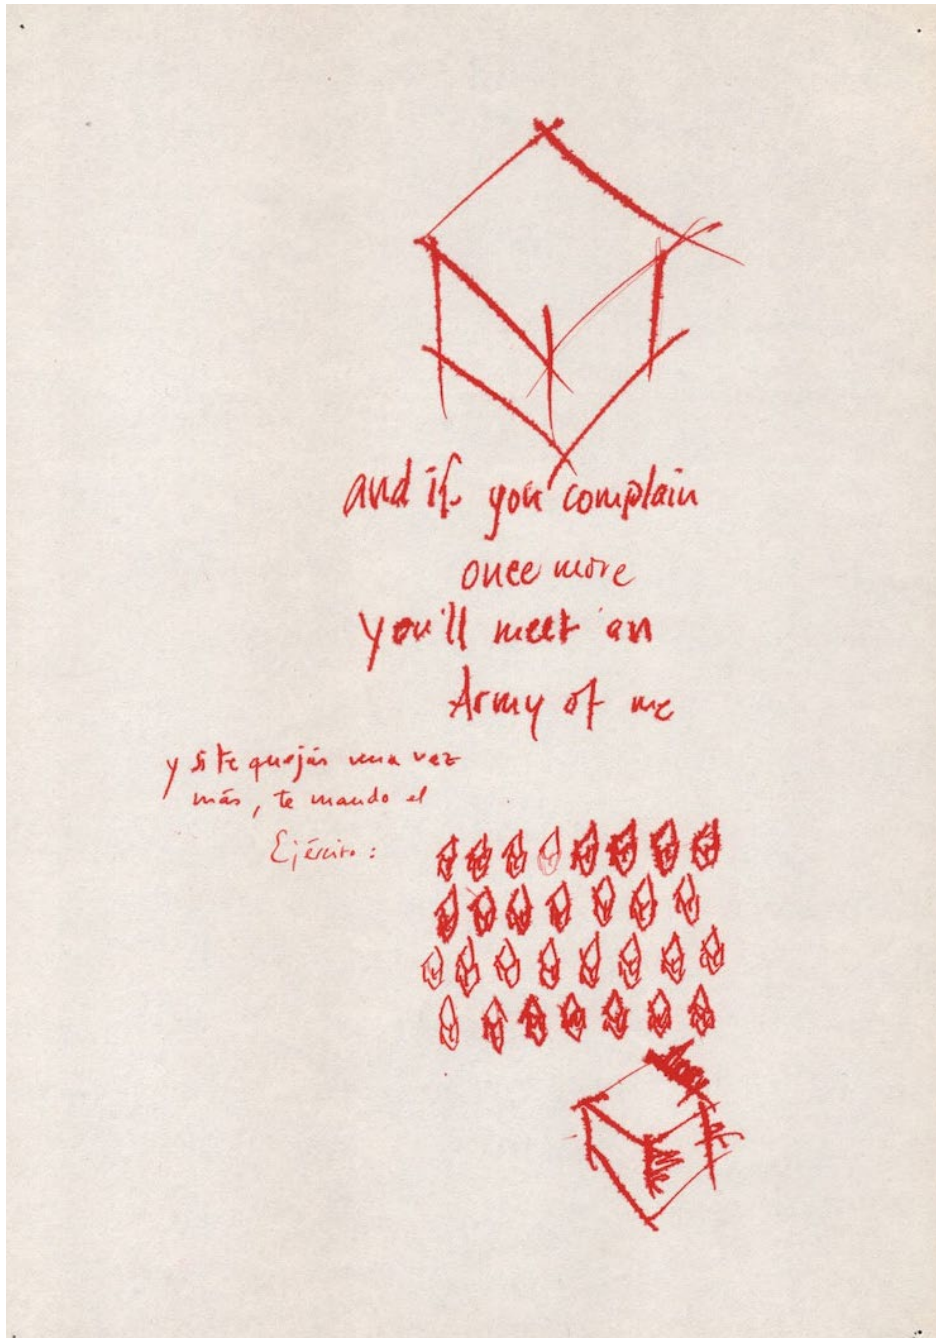 and if you complain
once more
you'll meet an
Army of me
y si te quejás una vez
más, te mando el
Ejército: